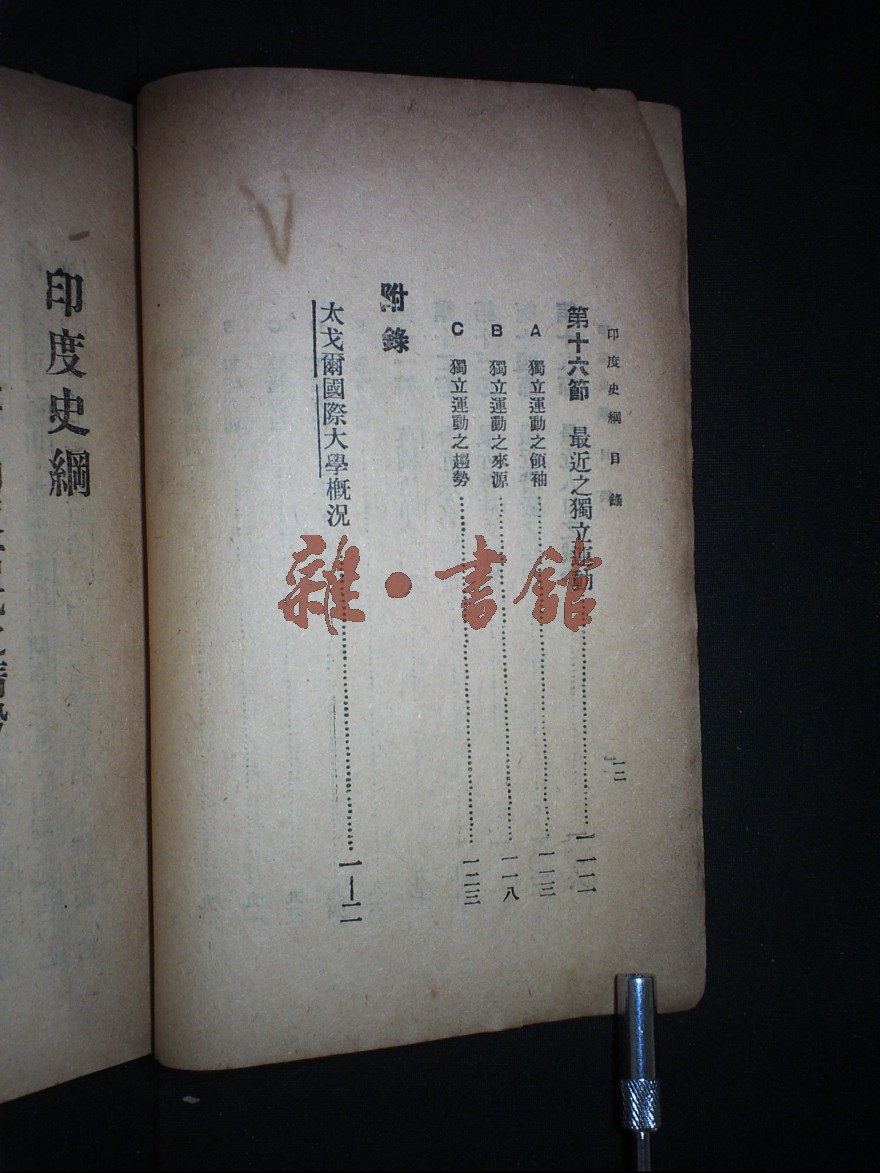 印度史綱目錄
一二
第十六節　最近之獨立運動……一一二
A　獨立運動之領袖……一一三
B　獨立運動之來源……一一八
C　獨立運動之趨勢……一二三
附錄
太戈爾國際大學概況……一—二
印度史綱
雜·書館